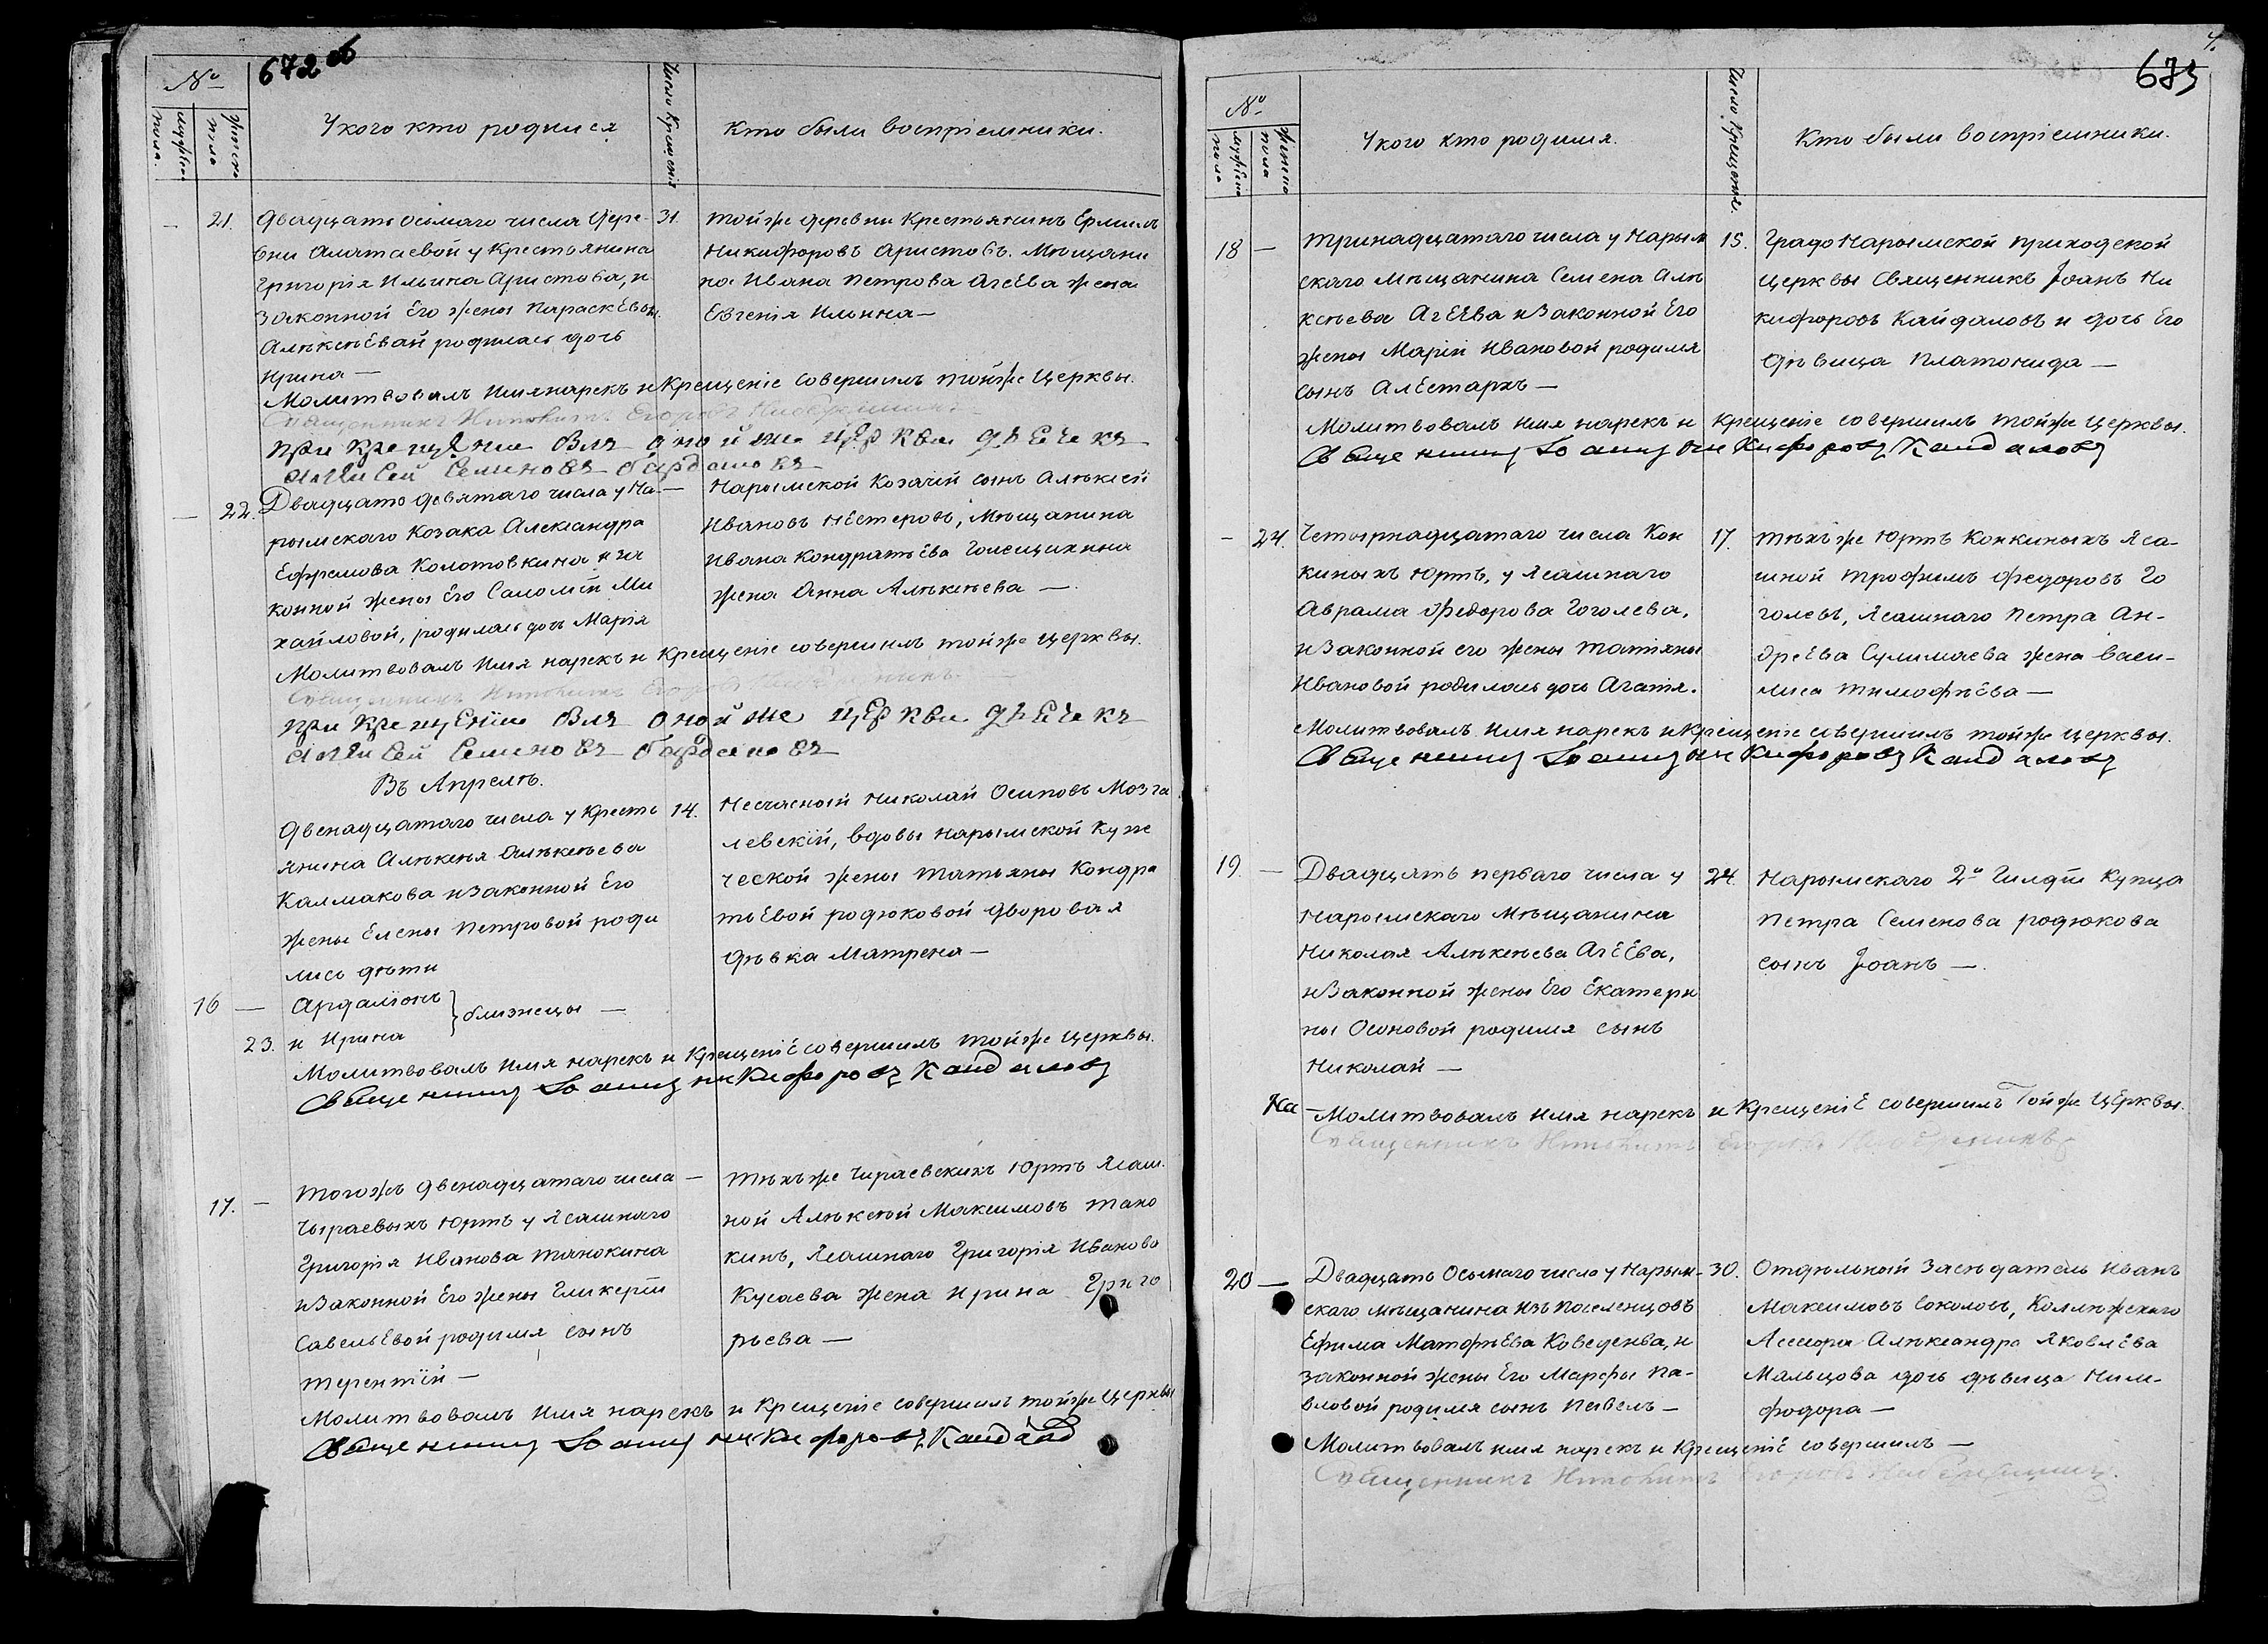 672 об
№
мужеска пола.
женска пола
У кого кто родился
Число Крещенія
Кто были воспріемники.
— 21.
Двадцать осьмаго числа дере-
вни Алатаевой у Крестьянина
Григорія Ильина Аристова, и
законной Его жены Параскевы
Алѣксѣевай родилась дочь
Ирина —
31
той же деревни Крестьянинъ Ермилъ
Никифоровъ Аристовъ. Мѣщани
на Ивана Петрова Агеева жена
Евгенія Ильина —
Молитвовалъ Имя нарекъ и Крещеніе совершилъ той же Церквы.
Священникъ Егоровъ
при крещение былъ оной же церкви дьечекъ
Алѣксей Семеновъ
— 22.
Двадцать девятаго числа у На-
рымскаго Козака Александра
Ефремова Колотовкина и за
конной жены Его Саломіи Ми
хайловой, родилась дочь Марія
—
Нарымской Козачій сынъ Алѣксей
Ивановъ Нестеровъ, Мѣщанина
Ивана Кондратьева Голещихина
жена Анна Алѣксѣева —
Молитвовалъ Имя нарекъ и Крещеніе совершилъ той же Церквы.
Священникъ Егоровъ
при крещеніи былъ оной же церкви дьечекъ
Алѣксей Семеновъ
Въ Апрелѣ.
Двенадцатаго числа у Кресть
янина Алѣксѣя Алѣксѣева
Калмакова и Законной Его
жены Елены Петровой роди
лись дѣти
16 — Ардаліонъ
23. и Ирина } близнецы —
14.
Несчасной Николай Осиповъ Мозга
левскій, вдовы Нарымской Купе
ческой жены Татьяны Кондра
тьевой родюковой дворовая
дѣвка Матрена —
Молитвовалъ Имя нарекъ и Крещеніе совершилъ той же Церквы.
Священникъ Іоаннъ Никифоровъ Кайдаловъ
17. —
Тогожъ двенадцатаго числа
Чыраевыхъ Юртъ у Ясашнаго
Григорія Иванова Танокина
и Законной Его жены Гликеріи
Савельевой родился сынъ
Терентій —
—
Тѣхъ же Чираевскихъ Юртъ Ясаш.
ной Алѣксѣй Максимовъ Тано
кинъ, Ясашнаго Григорія Иванова
Кусаева жена Ирина Григо
рьева —
Молитвовалъ Имя нарекъ и Крещеніе совершилъ той же Церквы
Священникъ Іоаннъ Никифоровъ
673
№
мужеска пола
женска пола
У кого кто родился.
Число Крещенія.
Кто были воспріемники.
18 —
Тринадцатаго числа у Нарым
скаго Мѣщанина Семена Алѣ
ксѣева Агеева и Законной Его
жены Маріи Ивановой родился
сынъ Алестархъ —
15.
Градо Нарымской приходской
церквы Священникъ Іоанъ Ни
кифоровъ Кайдаловъ и дочь Его
дѣвица Платонида —
Молитвовалъ имя нарекъ и Крещеніе совершилъ той же Церквы.
Священникъ Іоаннъ Никифоровъ Кайдаловъ
— 24.
Четырнадцатаго числа Кон
киныхъ Юртъ, у Ясашнаго
Аврама Федорова Гоголева,
и Законной его жены Татіяны
Ивановой родилась дочь Агатія.
17.
тѣхъ же Юртъ Конкиныхъ Яса-
шной Трофимъ Федоровъ Го
голевъ, Ясашнаго Петра Ан-
дреева Сулимаева жена Васи-
лиса Тимофѣева —
Молитвовалъ Имя нарекъ и Крещеніе совершилъ той же Церквы.
Священникъ Іоаннъ Никифоровъ Кайдаловъ
19. —
Двадцать перваго числа у
Нарымскаго Мѣщанина
Николая Алѣксѣева Агеева,
и Законной жены Его Екатери
ны Осиповой родился сынъ
Николай —
24.
Нарымскаго 2й Гилдіи Купца
Петра Семенова родюкова
сынъ Іоанъ —.
Молитвовалъ имя нарекъ и Крещеніе совершилъ Той же Церквы.
Священникъ Егоровъ
20 —
Двадцать Осьмаго числа у Нарым-
скаго мѣщанина изъ поселенцовъ
Ефима Матфѣева, и
законной жены Его Марфы Па-
вловой родился сынъ Павелъ —
30.
Отдѣльной Засѣдатель Иванъ
Максимовъ Соколовъ, Коллѣжскаго
Асессора Алѣксандра Яковлева
Мальцова дочь дѣвица Ним-
фодора —
Молитвовалъ имя нарекъ и Крещеніе совершилъ —
Священникъ Егоровъ